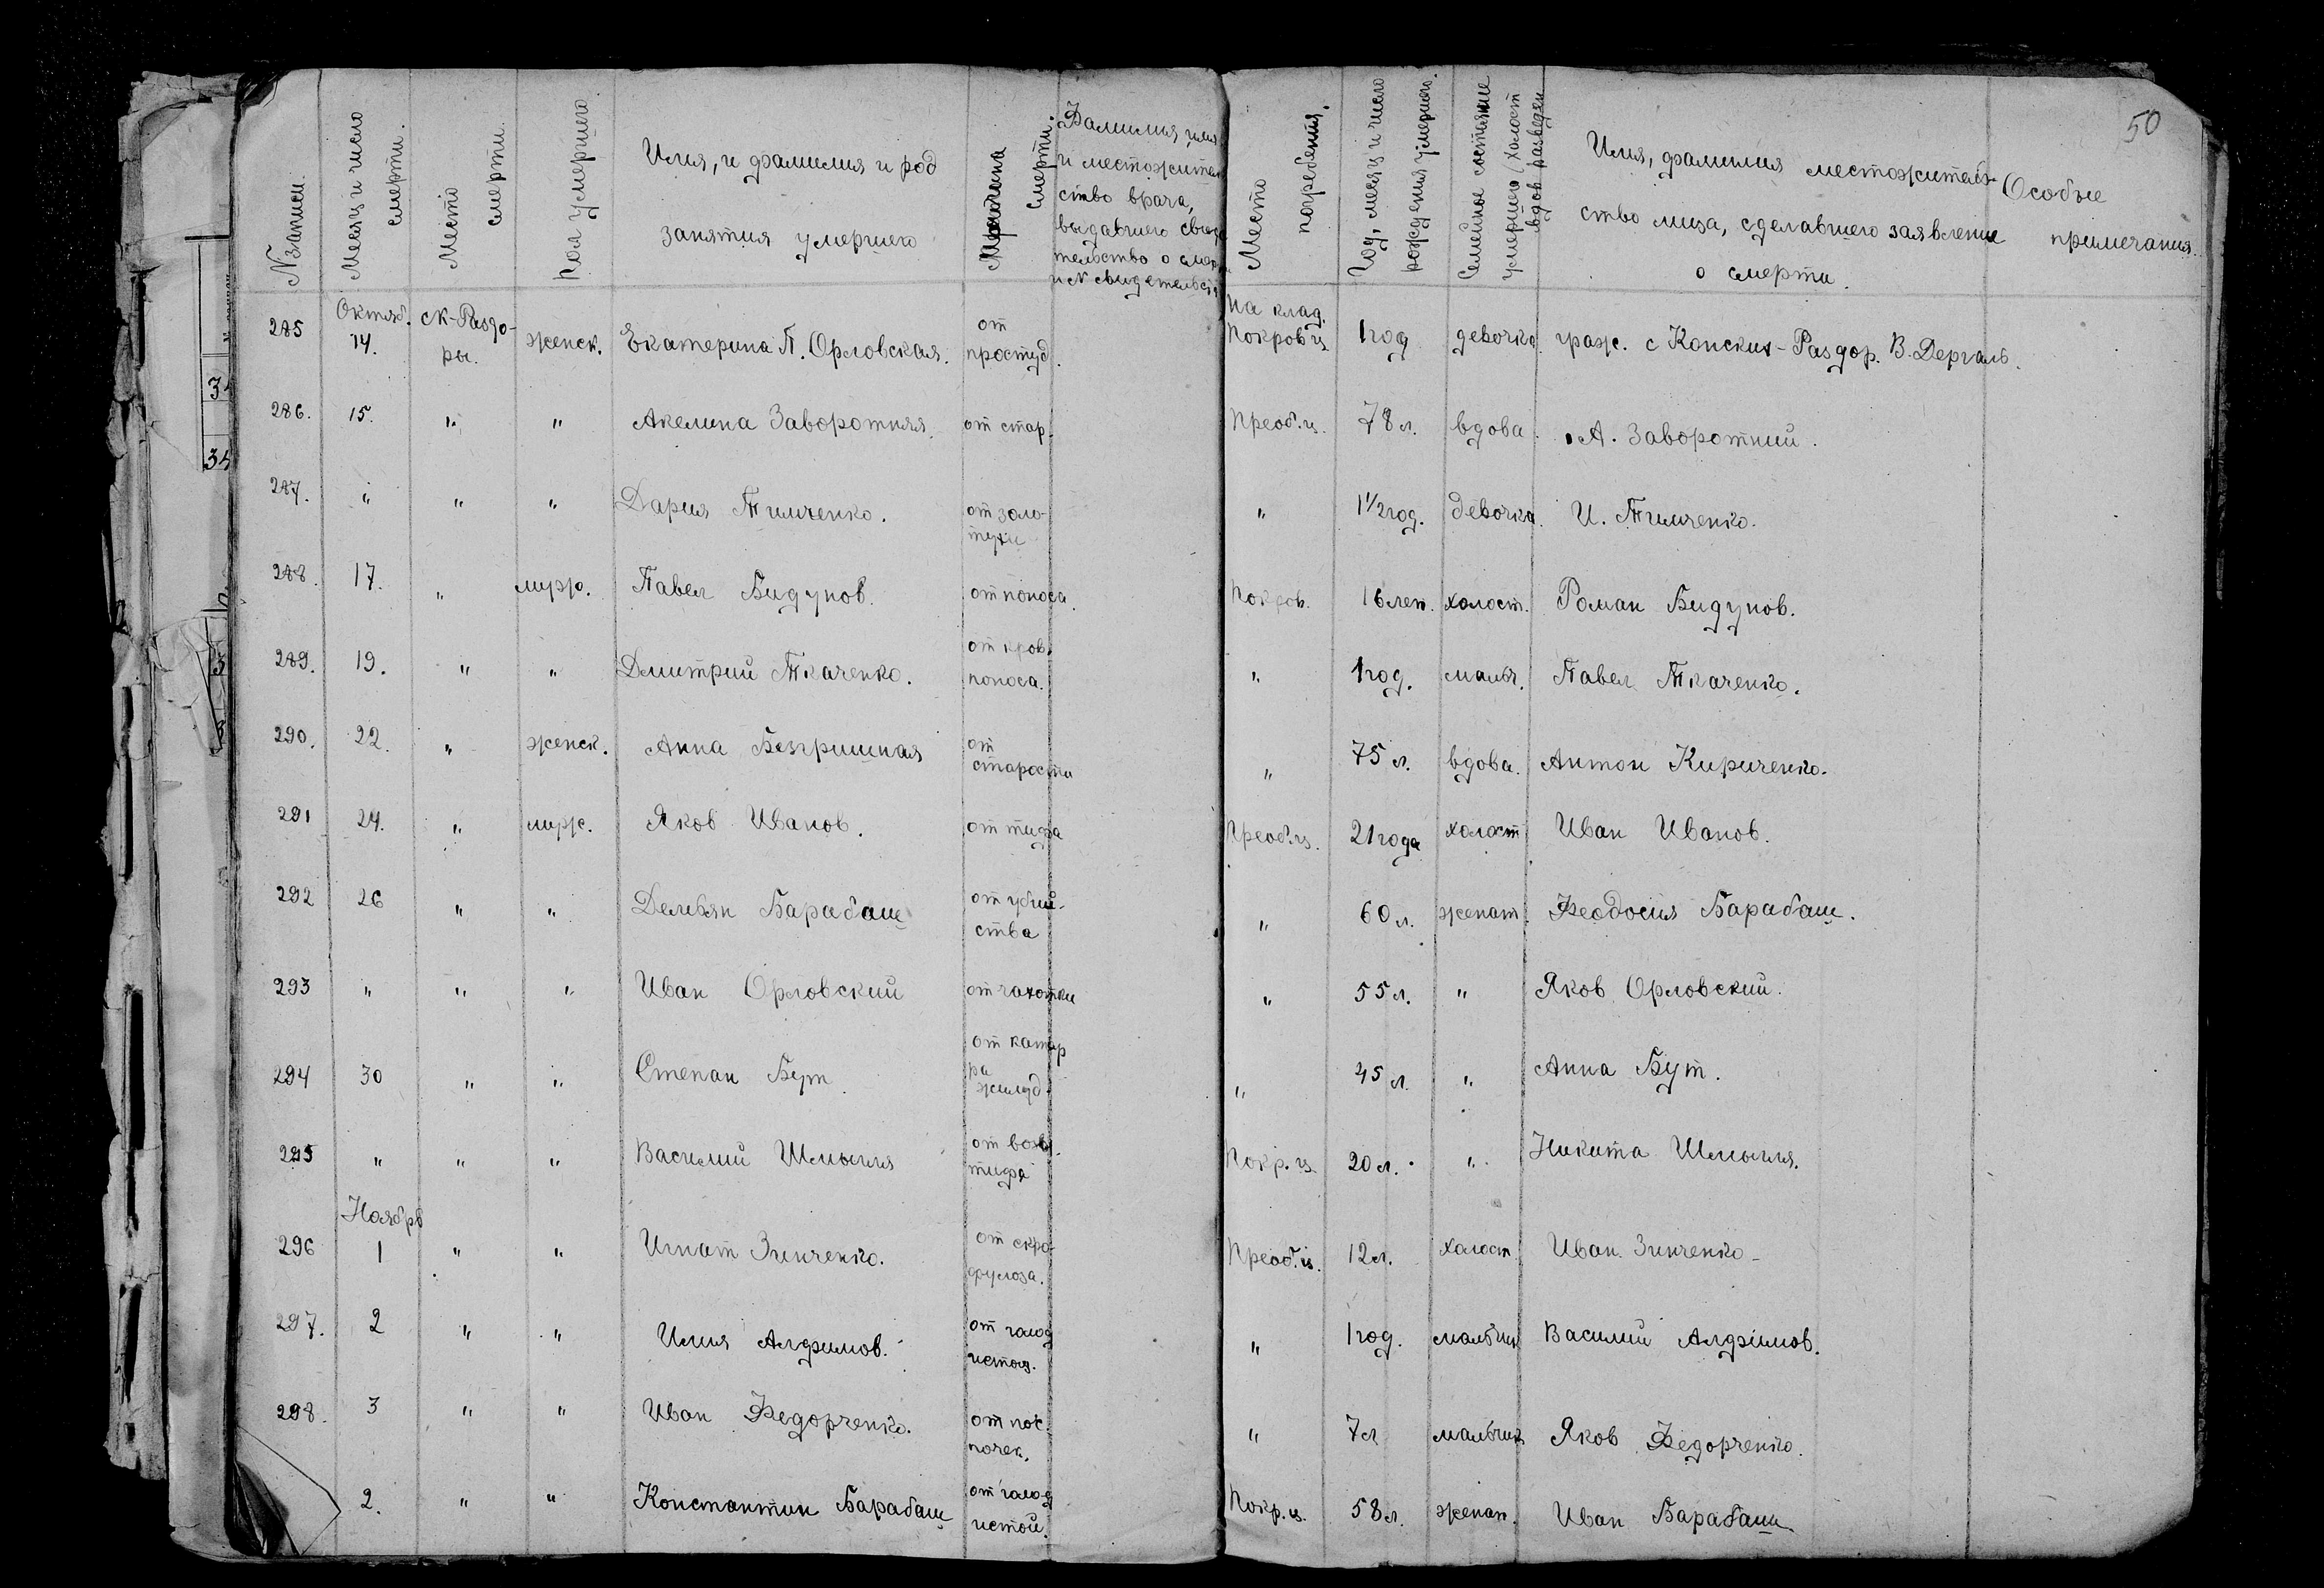 50
№ записи.
Месяц и число смерти.
Место смерти.
Пол умершего.
Имя, и фамилия и род
занятия умершего
Причина смерти.
Фамилия, имя
и местожитель
ство врача,
выдавшего свиде
тельство о смер
и № свидетельст
Место погребения.
Год, месяц и число рождения умершего.
Семейное состояние умершего (холост вдов разведен
Имя, фамилия местожитель-
ство лица, сделавшего заявление
о смерти.
Особые
примечания.
285 Октяб. 14. К-Раздо-ры. женск. Екатерина П. Орловская. от простуд. На клад. Покров ц. 1 год девочка. граж. с Конских-Раздор. В. Дергаль.
286. 15. " " Акелина Заворотняя. от стар. Преоб. ц. 78 л. вдова. А. Заворотний.
287. " " " Дария Тимченко. от золо-тухи " 1½ год. девочка. И. Тимченко.
288. 17. " мурж. Павел Бидунов. от поноса. Покров. 16 лет. холост. Роман Бидунов.
289. 19. " " Дмитрий Ткаченко. от кров. поноса. " 1 год. мальч. Павел Ткаченко.
290. 22. " женск. Анна Безгришная от старости " 75 л. вдова. Антон Кириченко.
291 24. " мурж. Яков Иванов. от тифа Преоб. ц. 21 года холост Иван Иванов.
292 26 " " Демьян Барабаш от убий-ства " 60 л. женат. Феодосия Барабаш.
293 " " " Иван Орловский от чахотки " 55 л. " Яков Орловский.
294 30 " " Степан Бут. от катар ра желуд. " 45 л. " Анна Бут.
295 " " " Василий Шмыгля от возв. тифа Покр. ц. 20 л. " Никита Шмыгля.
296 Ноябрь 1 " " Игнат Зинченко. от скро-фулоза. Преоб. ц. 12 л. холост. Иван Зинченко-
297. 2 " " Илия Алфимов. от голод истощ. " 1 год. мальчик Василий Алфимов.
298. 3 " " Иван Федорченко. от почек. " 7 л мальчик Яков Федорченко.
2. " " Константин Барабаш от голод истощ. Покр. ц. 58 л. женат. Иван Барабаш